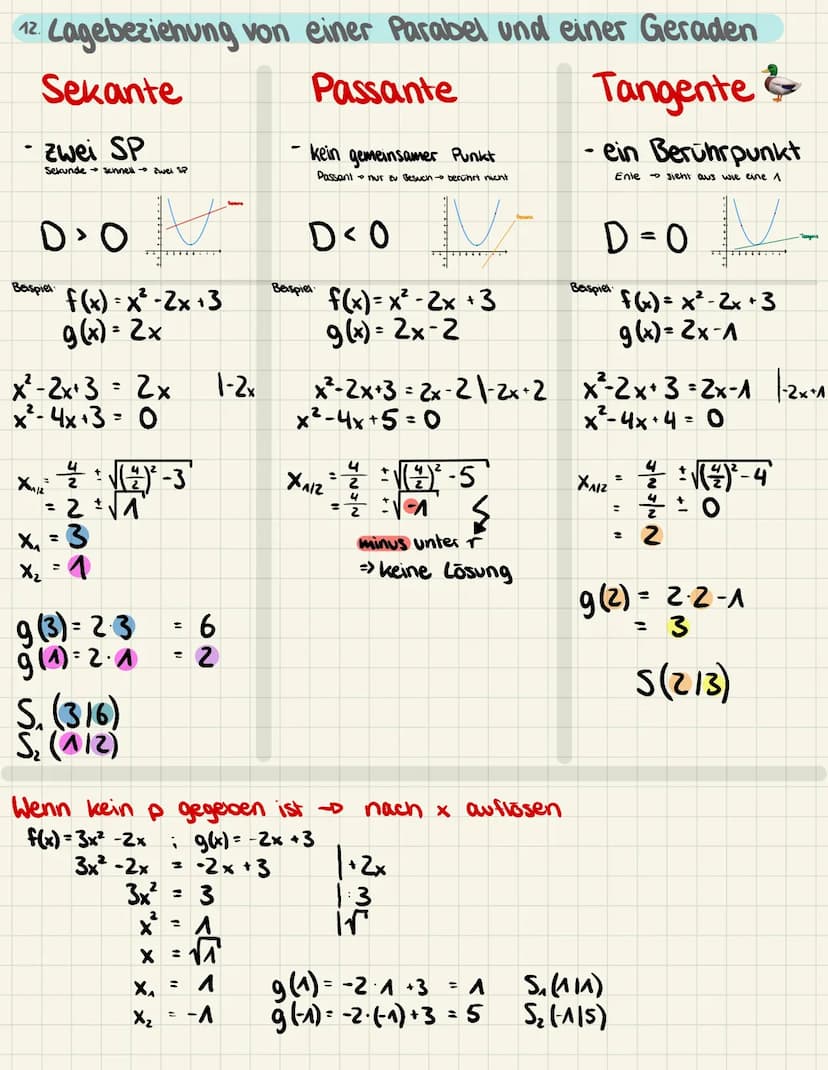 12. Lagebeziehung von einer Parabel und einer Geraden
Sekante
- zwei SP
Sekunde → schnell → zwei SP
D > 0
Beispiel:
f(x) = x² - 2x + 3
g(x) = 2x
x² - 2x + 3 = 2x |-2x
x² - 4x + 3 = 0
x₁/₂ = 4/2 ± √((4/2)² - 3)
= 2 ± √1
x₁ = 3
x₂ = 1
g(3) = 2·3 = 6
g(1) = 2·1 = 2
S₁ (3|6)
S₂ (1|2)
Passante
- kein gemeinsamer Punkt
Passant → nur zu Besuch → berührt nicht
D < 0
Beispiel:
f(x) = x² - 2x + 3
g(x) = 2x - 2
x² - 2x + 3 = 2x - 2 |-2x + 2
x² - 4x + 5 = 0
x₁/₂ = 4/2 ± √((4/2)² - 5)
= 4/2 ± √-1
minus unter √
=> keine Lösung
Tangente
- ein Berührpunkt
Ente → sieht aus wie eine 1
D = 0
Tangente
Beispiel:
f(x) = x² - 2x + 3
g(x) = 2x - 1
x² - 2x + 3 = 2x - 1 |-2x + 1
x² - 4x + 4 = 0
x₁/₂ = 4/2 ± √((4/2)² - 4)
= 4/2 ± 0
= 2
g(2) = 2·2 - 1
= 3
S(2|3)
Wenn kein p gegeben ist → nach x auflösen
f(x) = 3x² - 2x ; g(x) = -2x + 3
3x² - 2x = -2x + 3 |+2x
3x² = 3 |:3
x² = 1 |√
x = √1
x₁ = 1 g(1) = -2·1 + 3 = 1 S₁(1|1)
x₂ = -1 g(-1) = -2·(-1) + 3 = 5 S₂(-1|5)